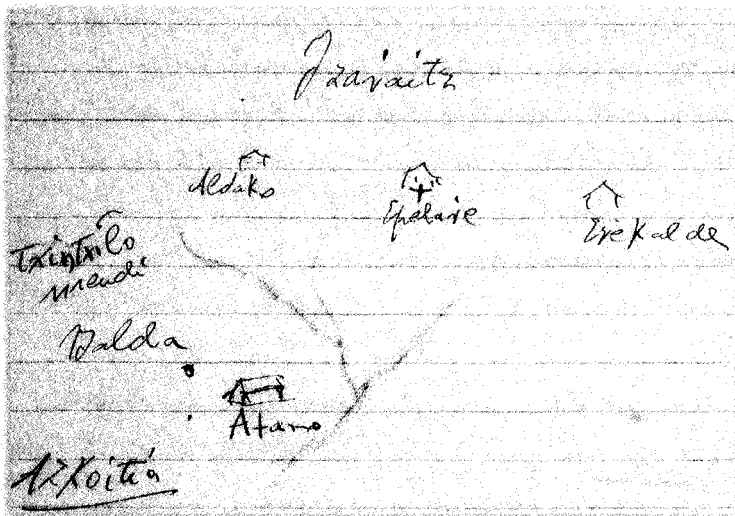 Izaraitz
Aldako
Epelaive
Erekalde
Txintxilo
mendi
Balda
Atano
AZKoitia